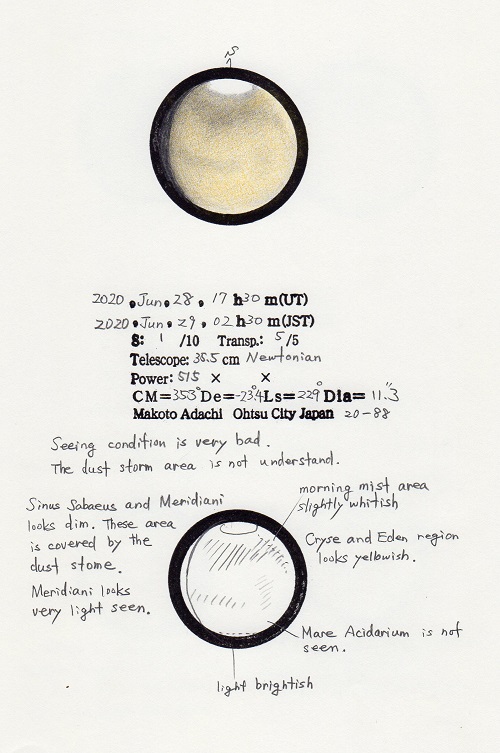 S
2020, Jun, 28, 17 h30 m(UT)
2020, Jun, 29, 02 h30 m(JST)
S: 1 /10 Transp.: 5/5
Telescope: 38.5 cm Newtonian
Power: 515 × ×
CM=353° De=-23.4° Ls=229° Dia= 11.″3
Makoto Adachi Ohtsu City Japan 20-88
Seeing condition is very bad.
The dust storm area is not understand.
Sinus Sabaeus and Meridiani
looks dim. These area
is covered by the
dust stome.
Meridiani looks
very light seen.
morning mist area
slightly whitish
Cryse and Eden region
looks yellowish.
Mare Acidarium is not
seen.
light brightish